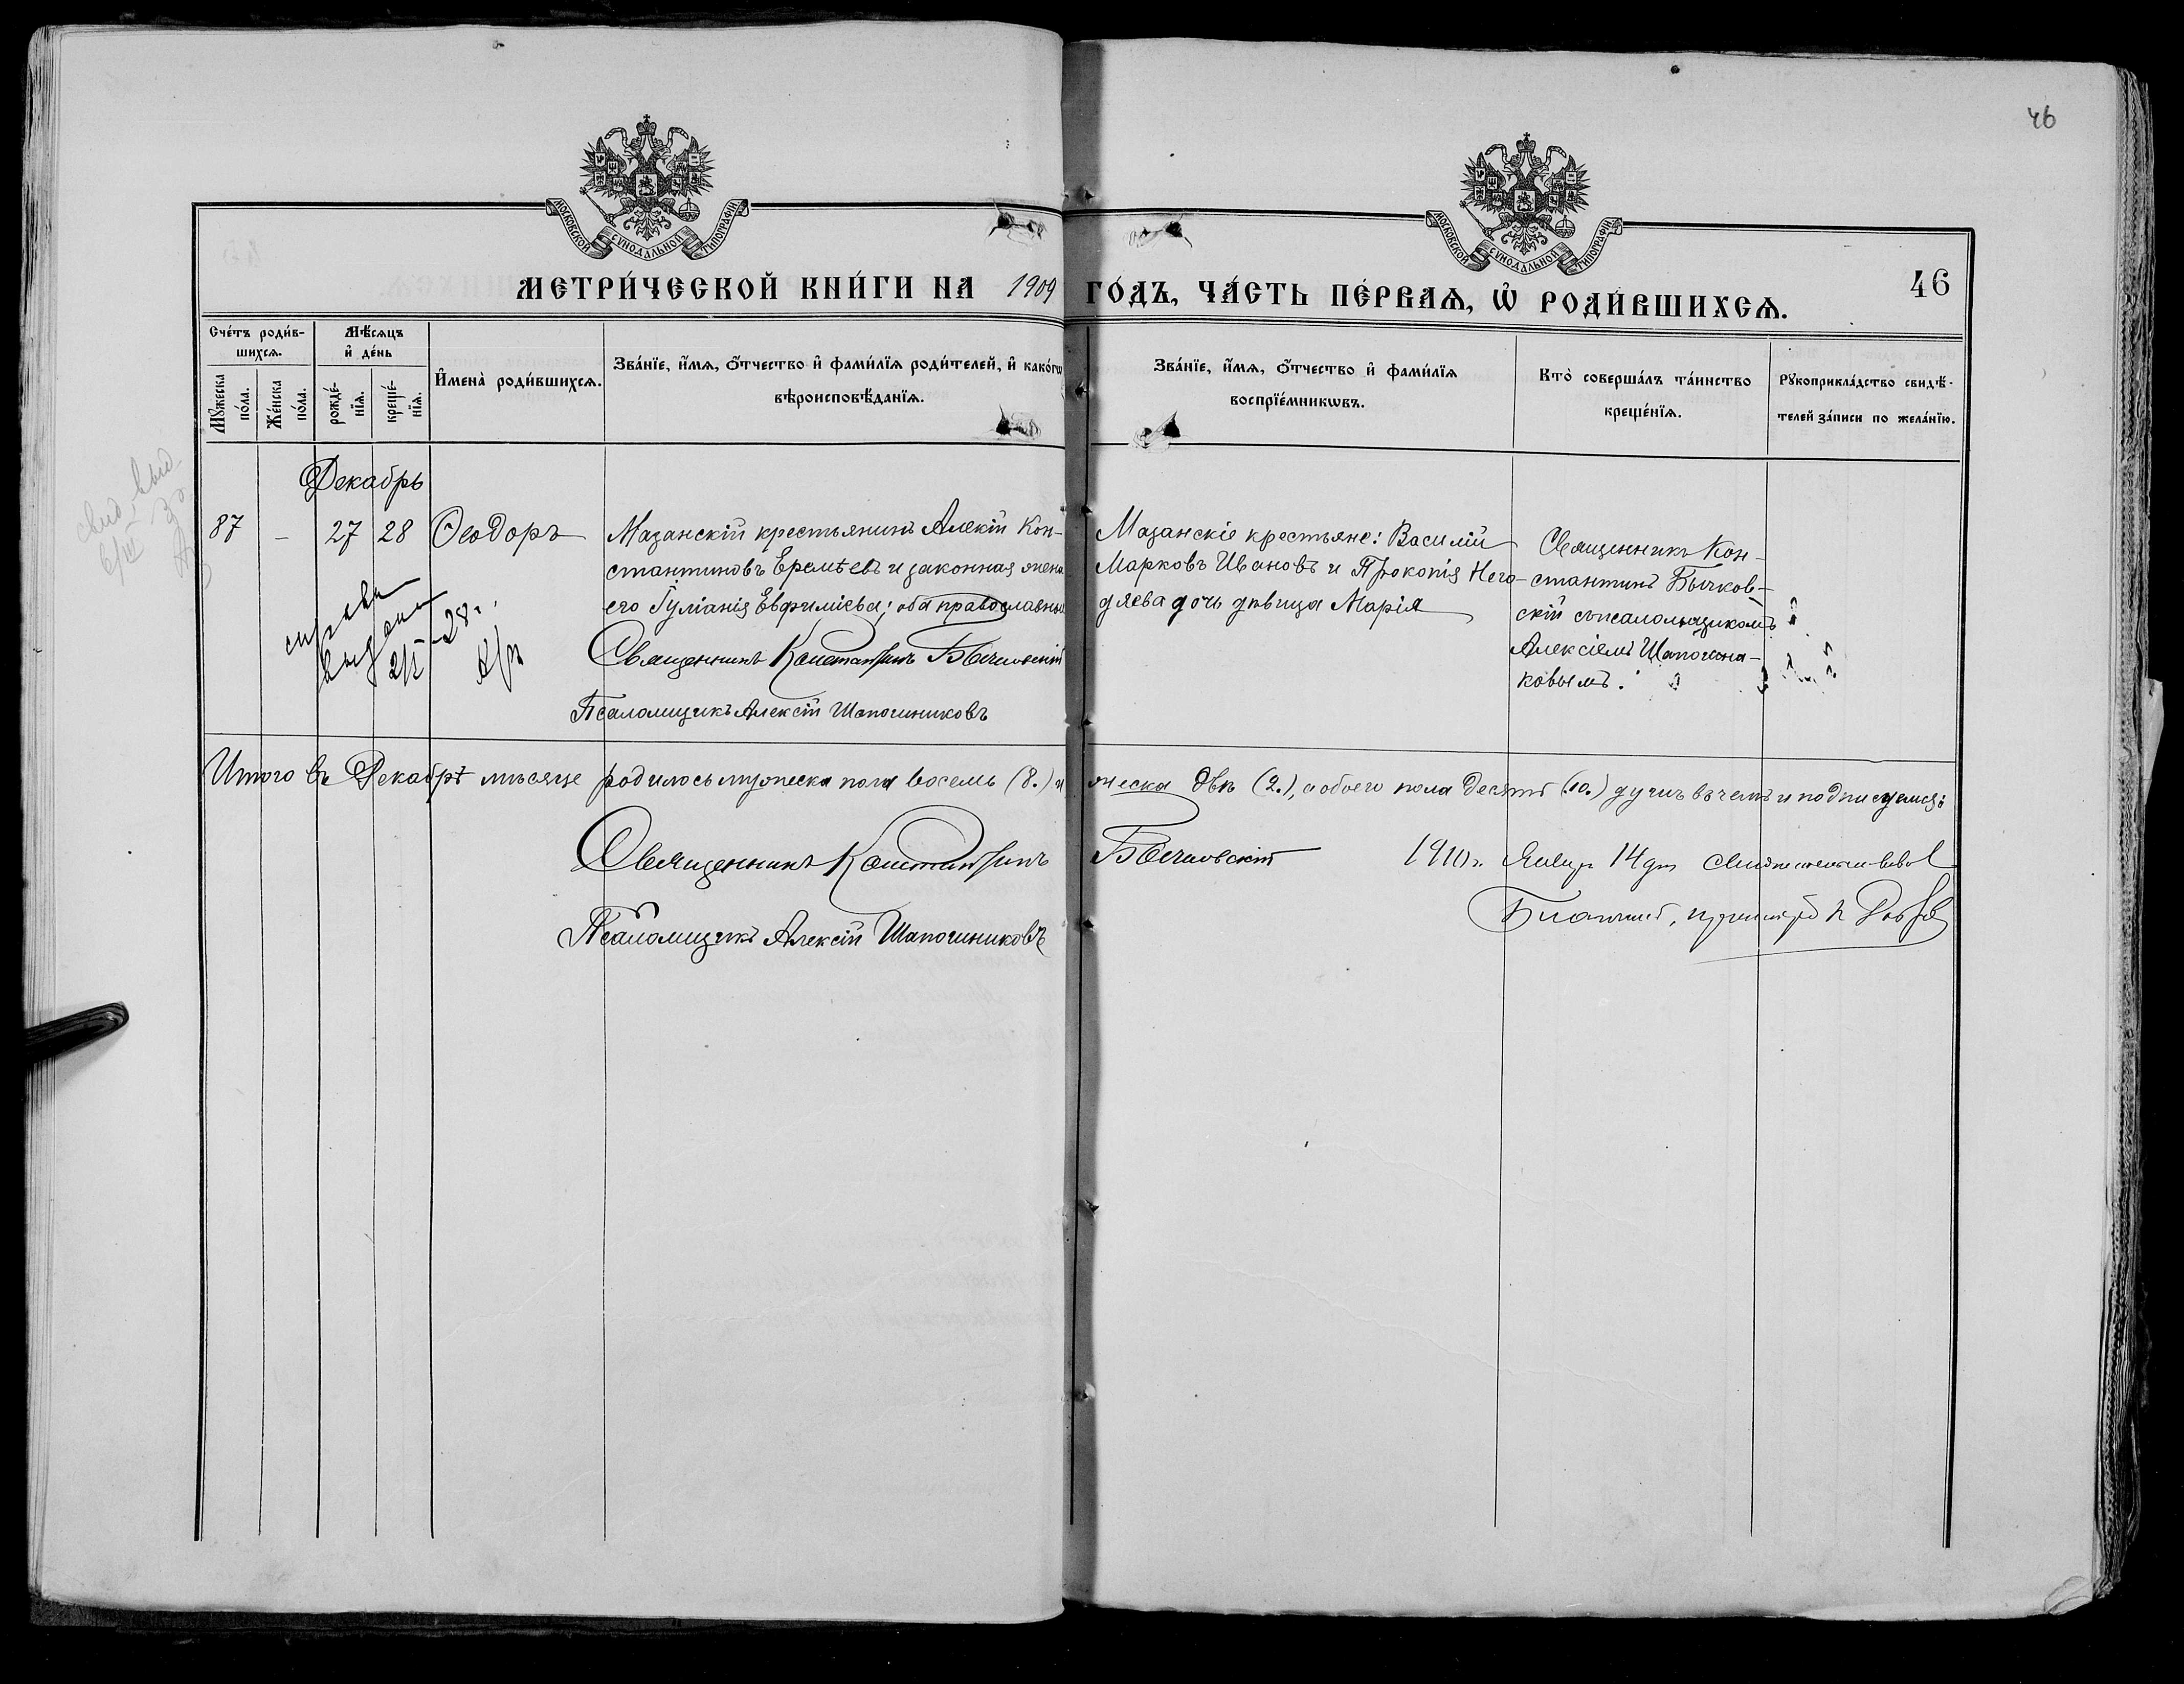 46
МОСКОВСКОЙ СѴНОДАЛЬНОЙ ТИПОГРАФІИ.
МОСКОВСКОЙ СѴНОДАЛЬНОЙ ТИПОГРАФІИ.
МЕТРИ́ЧЕСКОЙ КНИ́ГИ НА 1909 ГО́ДЪ, ЧА́СТЬ ПЕ́РВАѦ, Ѡ РОДИ́ВШИХСѦ.
46
Сче́тъ роди́в-
шихсѧ.
Мꙋ́жеска
по́ла.
Же́нска
по́ла.
Мѣ́сѧцъ
и҆ де́нь
рожде́-
нїѧ.
креще́-
нїѧ.
И҆мена̀ роди́вшихсѧ.
Зва́нїе, и҆́мѧ, ѻ҆́тчество и҆ фами́лїѧ роди́телей, и҆ како́гѡ
вѣроисповѣ́данїѧ.
Зва́нїе, и҆́мѧ, ѻ҆́тчество и҆ фами́лїѧ
воспрїе́мникѡвъ.
Кто̀ соверша́лъ та́инство
креще́нїѧ.
Рꙋкоприкла́дство свидѣ́-
телей за́писи по жела́нїю.
Декабрь
87
-
27
28
Ѳеодоръ
Мазанскій крестьянинъ Алексій Кон-
стантиновъ Еремѣевъ и законная жена
его Іуліанія Евфиміева; оба православные
Священникъ Константинъ Бычковскій
Псаломщикъ Алексій Шапочниковъ
Мазанскіе крестьяне: Василій
Марковъ Ивановъ и Прокопія Него-
дяева дочь дѣвица Марія
Священникъ Кон-
стантинъ Бычков-
скій съ псаломщикомъ
Алексіемъ Шапочни-
ковымъ.
справка
выдана
28 г.
Итого въ Декабрѣ мѣсяцѣ родилось мужеска пола восемь (8.) и женска двѣ (2.), а обоего пола десять (10.) душъ въ чемъ и подписуемся:
Священникъ Константинъ Бычковскій
Псаломщикъ Алексій Шапочниковъ
1910 г. Январ 14 дня